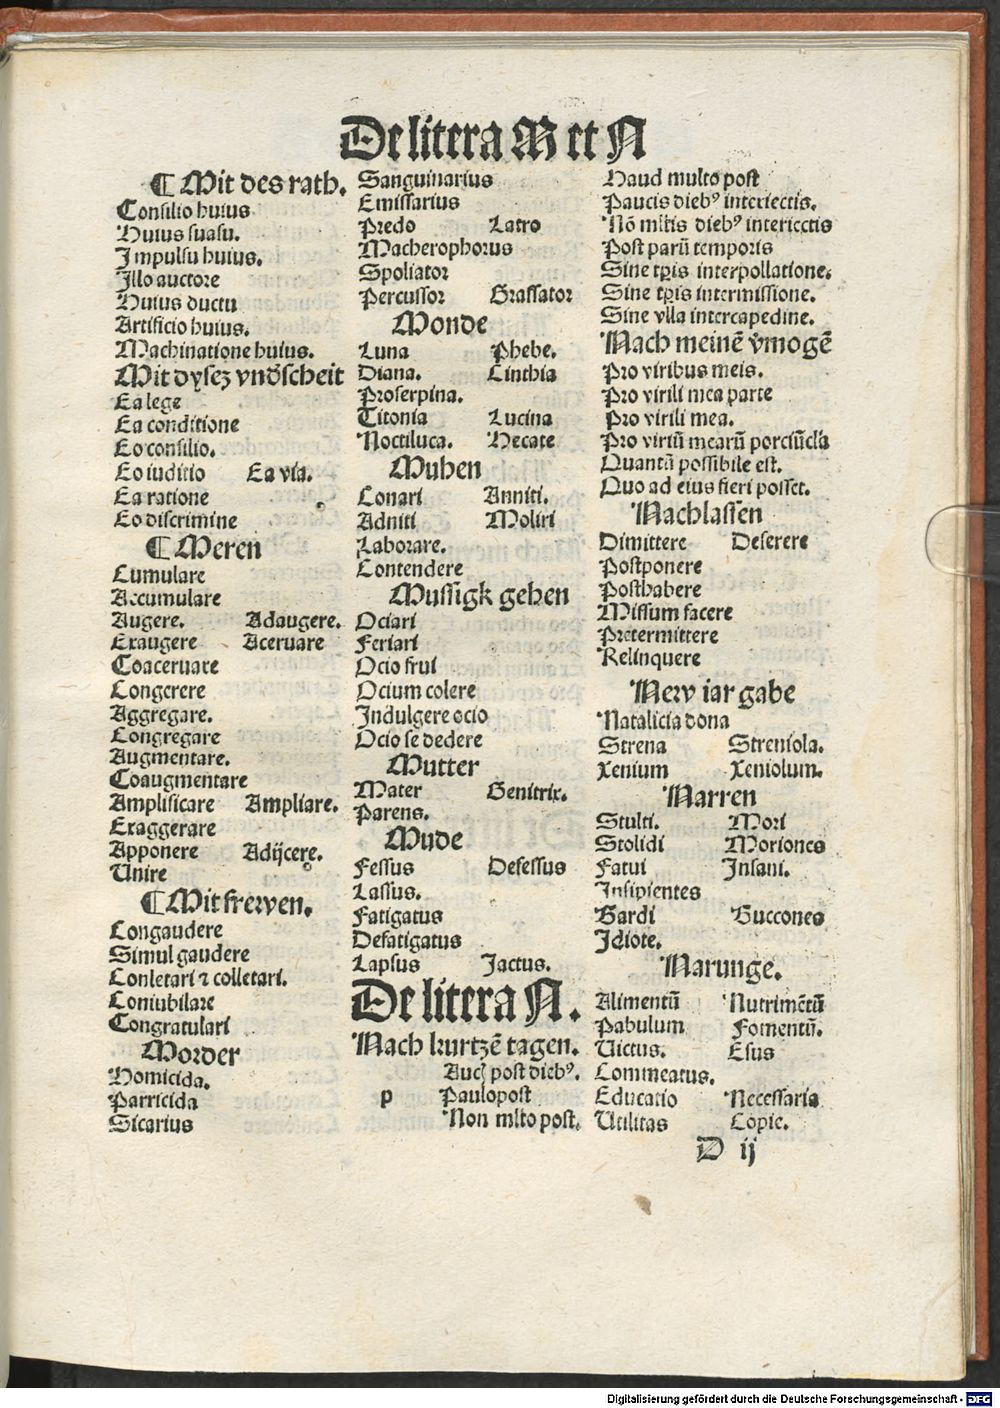 De litera M et N
¶ Mit des rath.
Consilio huius
Huius suasu.
Impulsu huius.
Illo auctore
Huius ductu
Artificio huius.
Machinatione huius.
Mit dysez vnd̄scheit
Ea lege
Ea conditione
Eo consilio.
Eo iuditio Ea via.
Ea ratione
Eo discrimine
¶ Meren
Cumulare
Accumulare
Augere. Adaugere.
Exaugere Aceruare
Coaceruare
Congerere
Aggregare.
Congregare
Augmentare.
Coaugmentare
Amplificare Ampliare.
Exaggerare
Apponere Adijcere.
Unire
¶ Mit frewen.
Congaudere
Simul gaudere
Conletari ⁊ colletari.
Coniubilare
Congratulari
Morder
Homicida.
Parricida
Sicarius
Sanguinarius
Emissarius
Predo Latro
Macherophorus
Spoliator
Percussor Grassator
Monde
Luna Phebe.
Diana. Cinthia
Proserpina.
Titonia Lucina
Noctiluca. Hecate
Muhen
Conari Anniti.
Adniti Moliri
Laborare.
Contendere
Mussigk gehen
Ociari
Feriari
Ocio frui
Ocium colere
Indulgere ocio
Ocio se dedere
Mutter
Mater Genitrix.
Parens.
Mude
Fessus Defessus
Lassus.
Fatigatus
Defatigatus
Lapsus Jactus.
De litera N.
Nach kurtzē tagen.
post diebꝰ.
p Paulopost
Non mlto post.
Haud multo post
Paucis diebꝰ interiectis.
Nō mltis diebꝰ interiectis
Post parū temporis
Sine tp̄is interpollatione.
Sine tp̄is intermissione.
Sine vlla intercapedine.
Nach meinē v̄mogē
Pro viribus meis.
Pro virili mea parte
Pro virili mea.
Pro viriū mearū porciūcla
Quantū possibile est.
Quo ad eius fieri posset.
Nachlassen
Dimittere Deserere
Postponere
Posthabere
Missum facere
Pretermittere
Relinquere
Newiar gabe
Natalicia dona
Strena Streniola.
Xenium Xeniolum.
Narren
Stulti. Mori
Stolidi Moriones
Fatui Insani.
Insipientes
Bardi Buccones
Idiote.
Narunge.
Alimentū Nutrimētū
Pabulum Fomentū.
Victus. Esus
Commeatus.
Educatio Necessaria
Utilitas Copie.
D ij
Digitalisierung gefördert durch die Deutsche Forschungsgemeinschaft - DFG